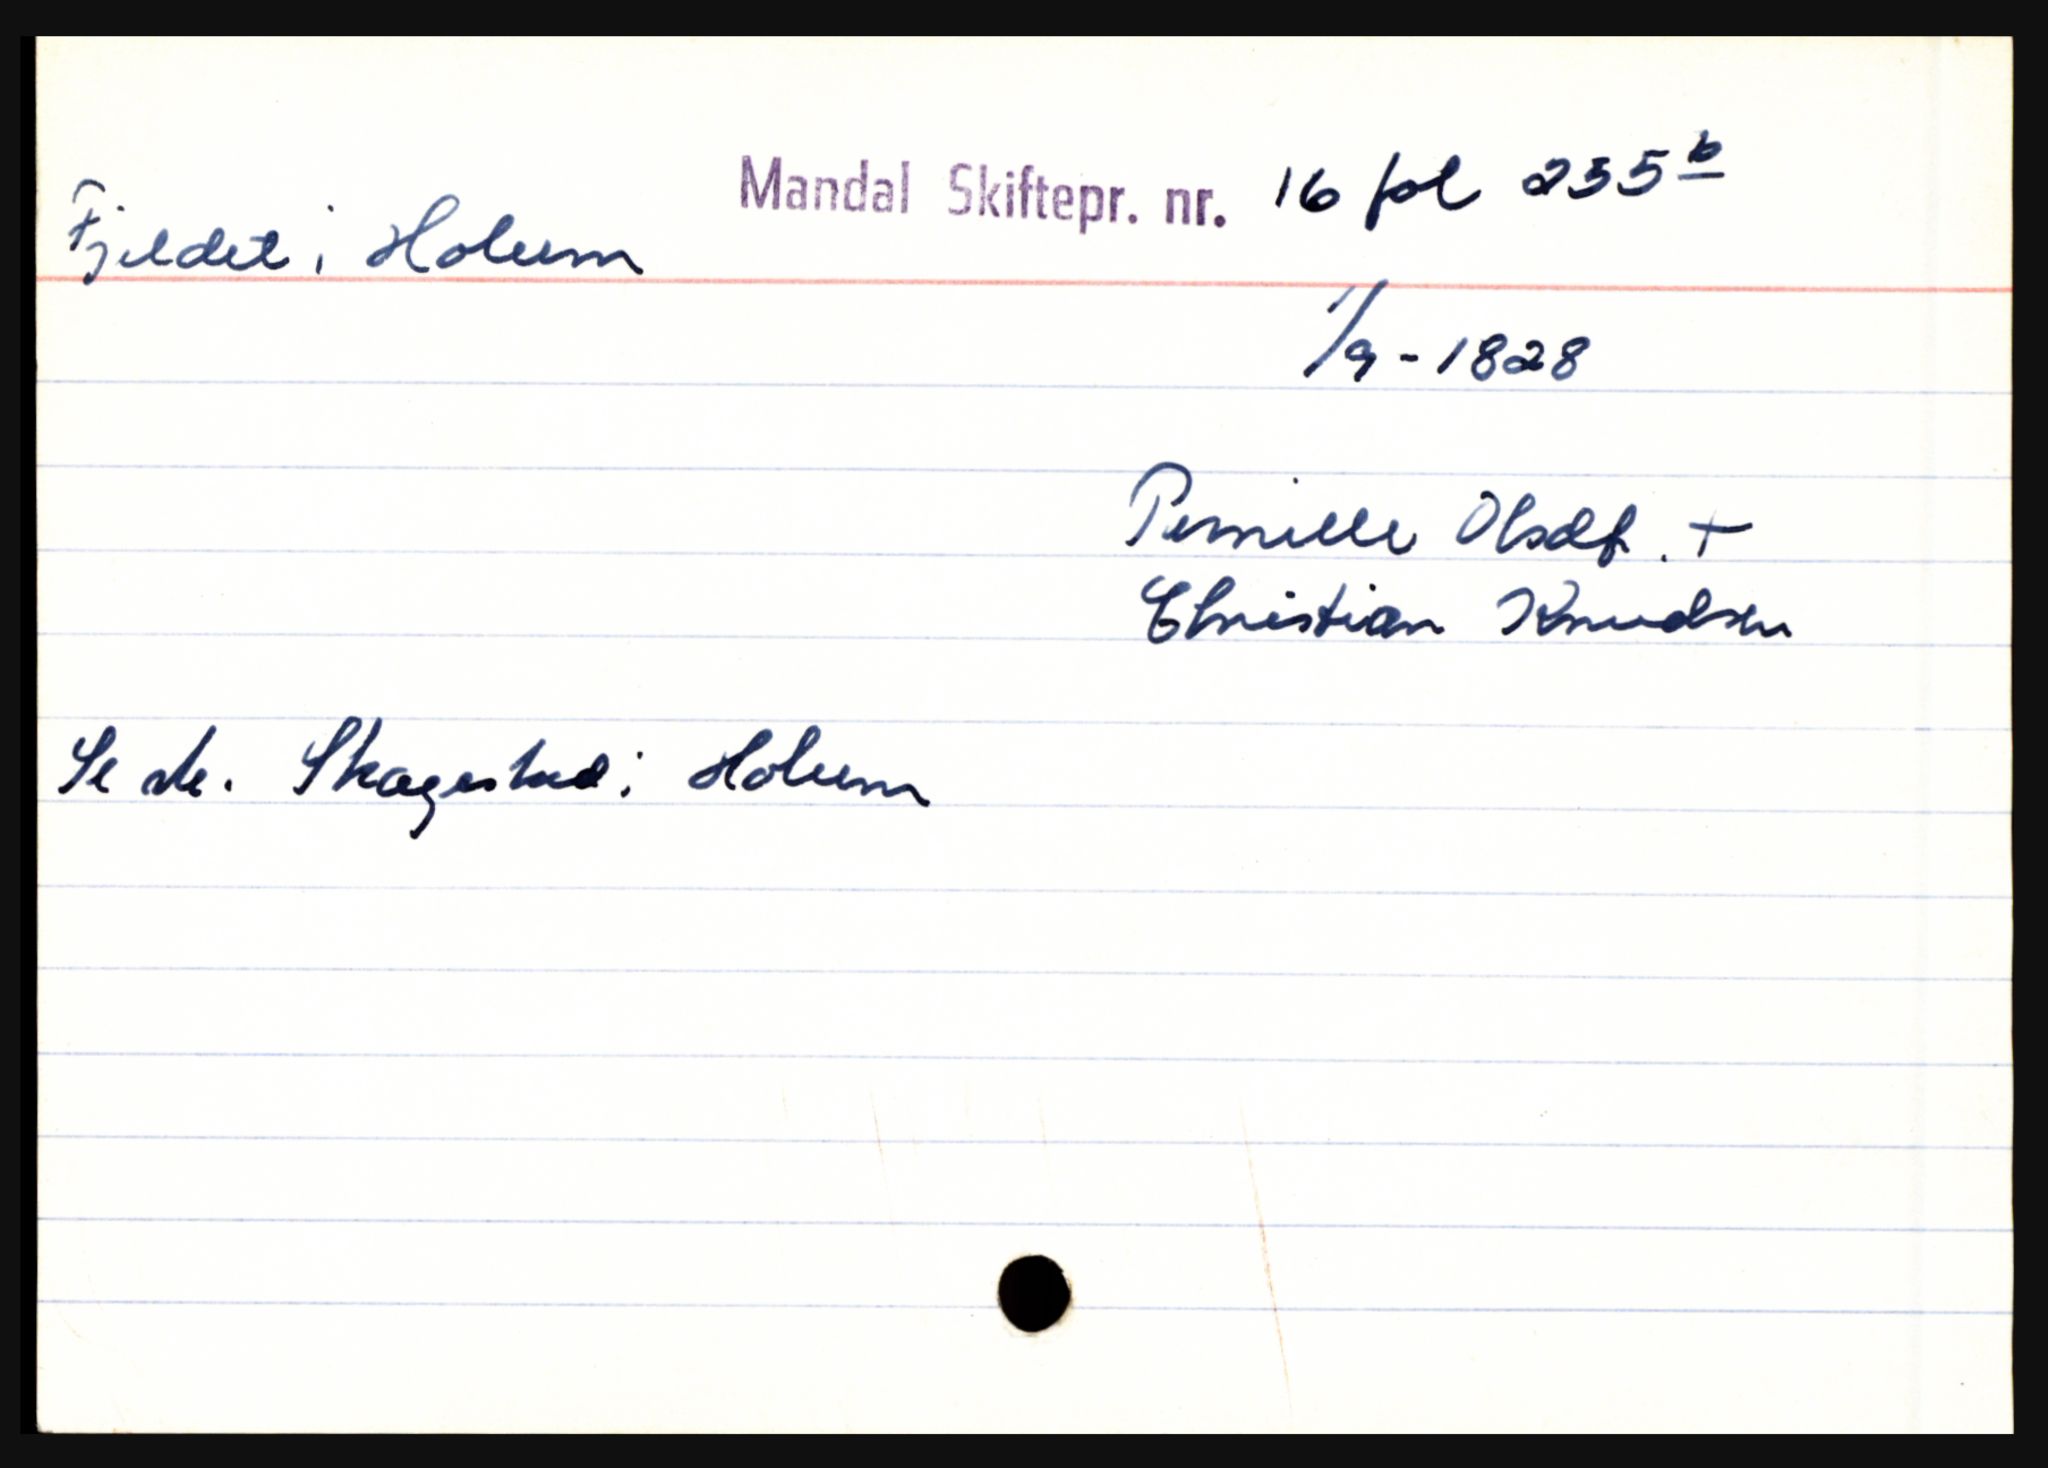 Mandal Skiftepr. nr. 16 fol 235 b
Fjeldet i Holum
1/9 - 1828
Pernille Olsdt. +
Christian Knudsen
Se Skagestad i Holum